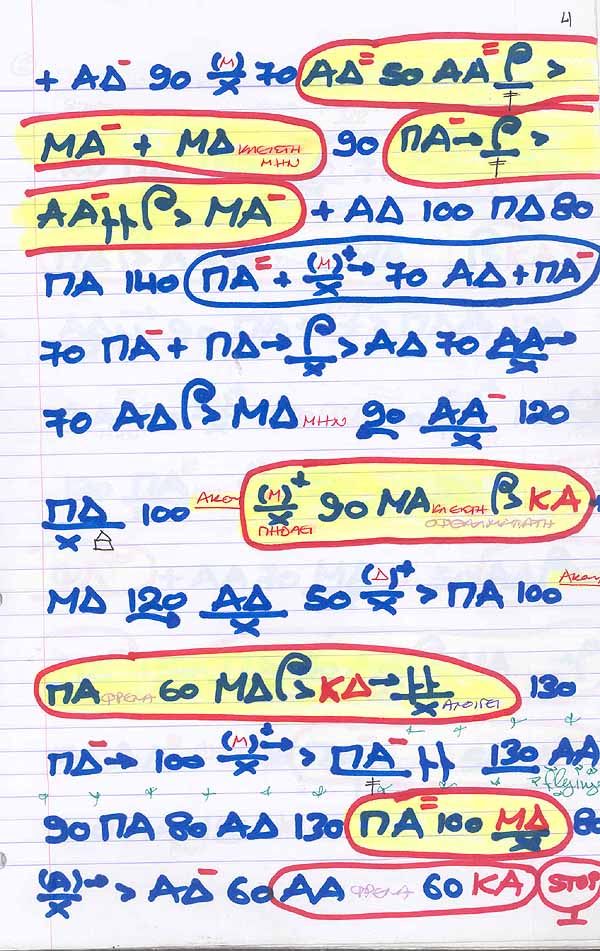 4
+ ΑΔ⁻ 90 (Μ)/x 70 ΑΔ⁼ 50 ΑΑ⁼ ρ >
ΜΑ⁻ + ΜΔ ΚΛΕΙΣΤΗ ΜΗΝ 90 ΠΑ⁻→ ρ >
ΑΑ⁻ ρ > ΜΑ⁻ + ΑΔ 100 ΠΔ 80
ΠΑ 140 ΠΑ⁼ + (Μ)⁺/x → 70 ΑΔ + ΠΑ⁻
70 ΠΑ⁻ + ΠΔ → ρ/x > ΑΔ 70 ΑΑ/x →
70 ΑΔ ρ > ΜΔ ΜΗΝ 90 ΑΑ⁻/x 120
ΠΔ/x 100 (Μ)⁺/x ΠΗΔΑΕΙ 90 ΜΑ ΚΛΕΙΣΤΗ ρ > ΚΑ +
ΜΔ 120 ΑΔ/x 50 (Δ)⁺/x > ΠΑ 100
ΠΑ ΦΡΕΝΑ 60 ΜΔ ρ > ΚΔ → x ΑΝΟΙΓΕΙ 130
ΠΔ⁻ → 100 (Μ)⁺/x → > ΠΑ⁻ 130 ΑΑ
flying
90 ΠΑ 80 ΑΔ 130 ΠΑ⁼ 100 ΜΔ/x 80
(Α)/x → > ΑΔ⁻ 60 ΑΑ ΦΡΕΝΑ 60 ΚΑ STOP